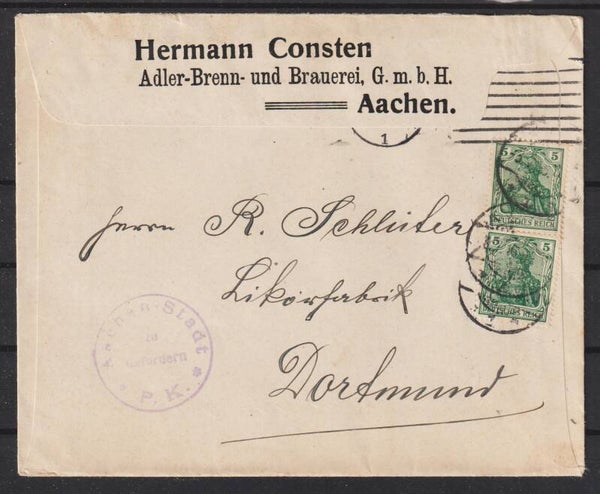 Hermann Consten
Adler-Brenn- und Brauerei, G. m. b. H.
Aachen.
1
5 5
DEUTSCHES REICH
5 5
DEUTSCHES REICH
Herrn R. Schlüter
Likörfabrik
Dortmund
Aachen-Stadt
zu
befördern
* P. K. *